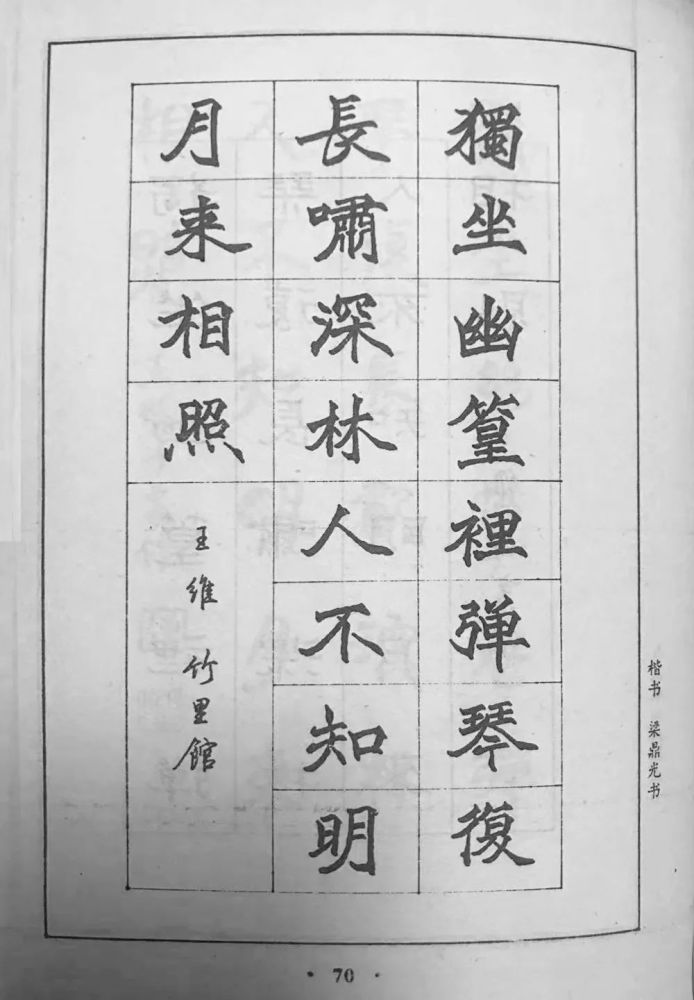 獨坐幽篁裡弹琴復
長嘯深林人不知明
月来相照
王维 竹里館
楷书 梁鼎光书
· 70 ·